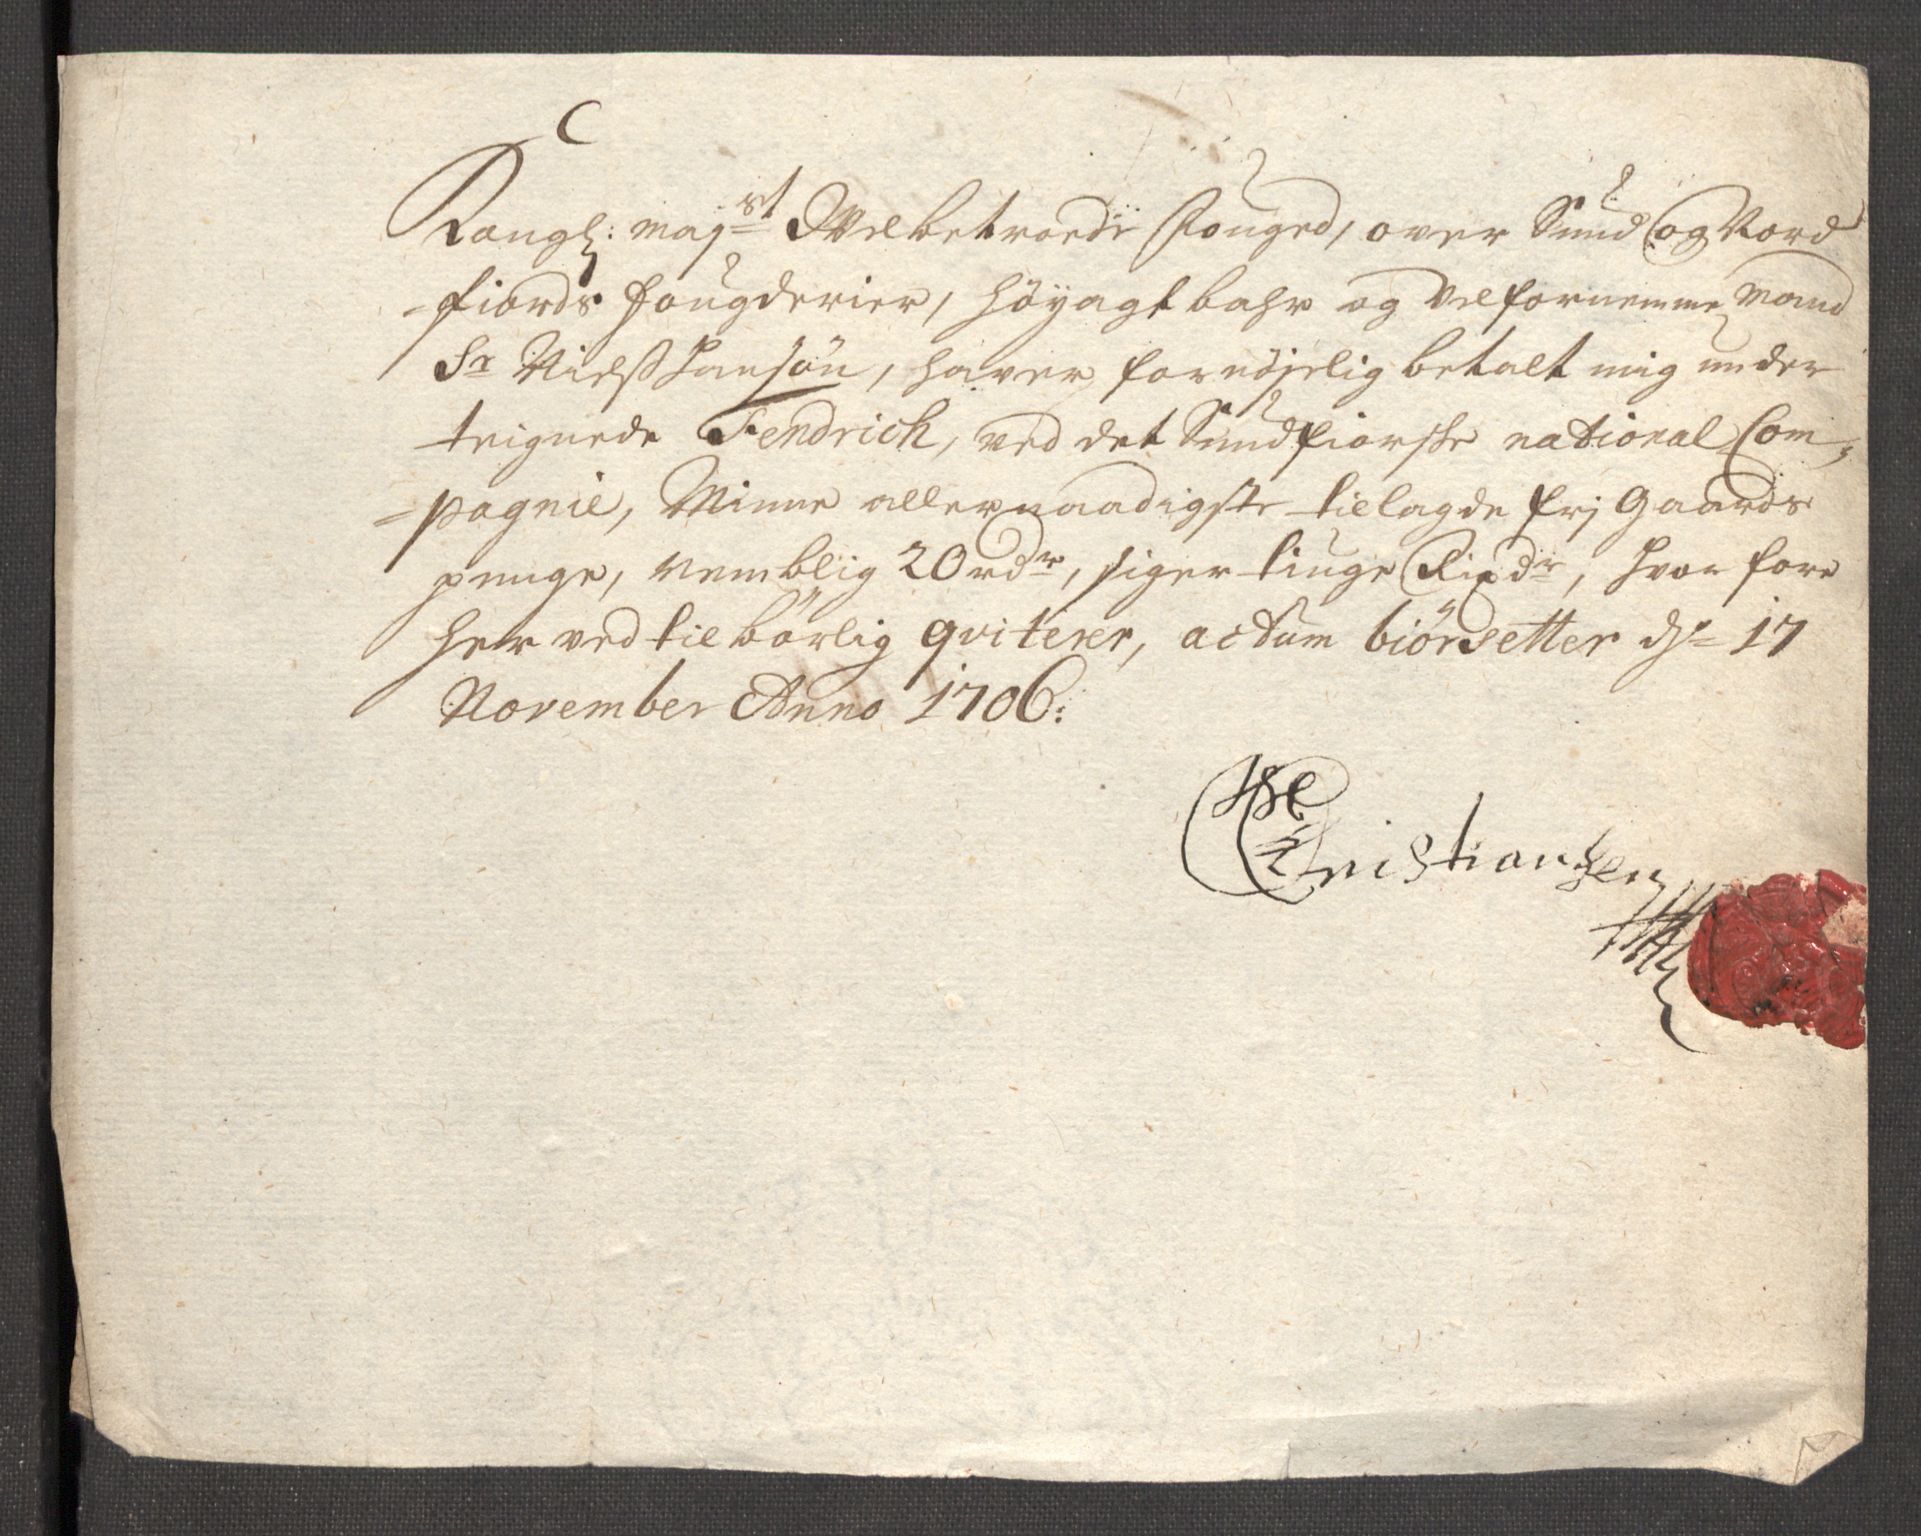 C
Kongl: may:st Velbetroede Fouged, over Sund og Nord
-fiords fougderier, høyagtbahr og Velfornemme Mand
Sr Nielss Hansøn, haver fornøjelig betalt mig under
teignede Fendrich, ved det Sundfiorske national Com-
-pagnie, Minne allernaadigste tillagde frj Gaards
penge, nemblig 20 rdr, siger tiuge Rixdr, hvor fore
her ved tilbörlig qviterer, actum biörsetter d: 17
November Anno 1706:
Christiansen